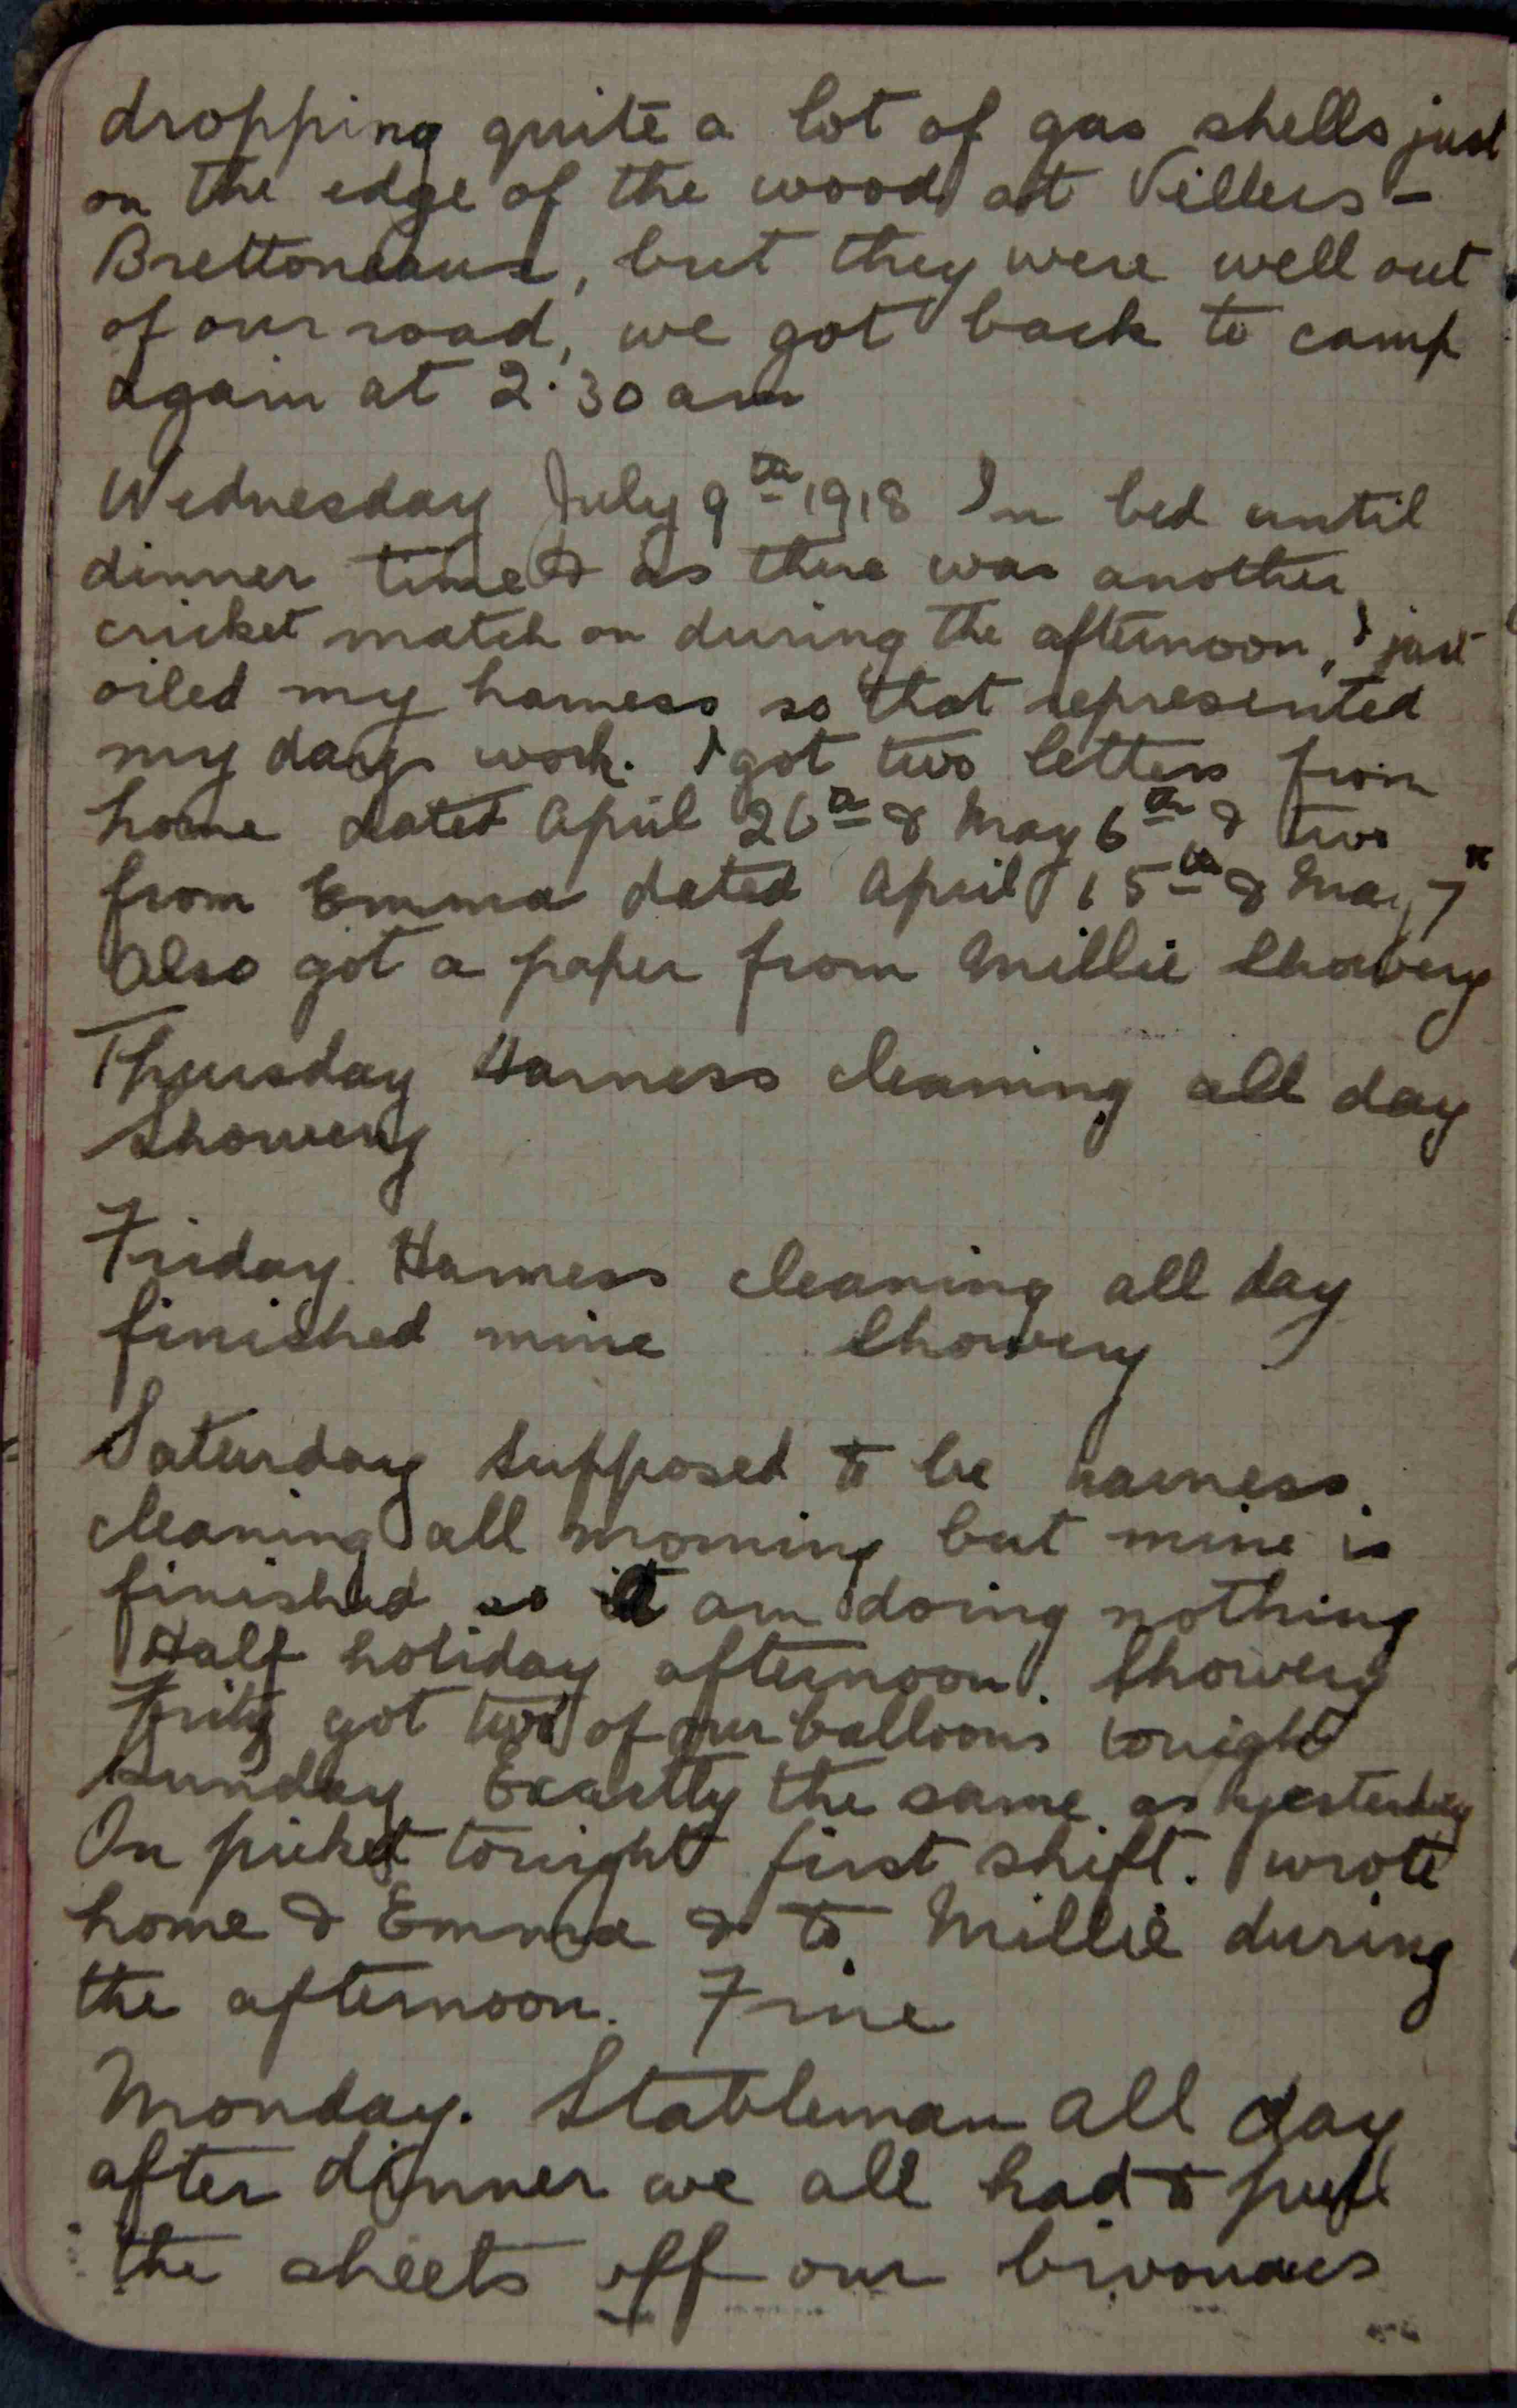 dropping quite a lot of gas shells just
on the edge of the wood at Villers-
Brettoneaux, but they were well out
of our road, we got back to camp
again at 2.30 am
Wednesday July 9th 1918 In bed until
dinner time & as there was another
cricket match on during the afternoon, I just
oiled my harness so that represented
my days work. I got two letters from
home dated April 26th & May 6th & two
from Emma dated April 15th & May 7th
Also got a paper from Millie Showery
Thursday Harness cleaning all day
Showery
Friday. Harness cleaning all day
finished mine Showery
Saturday Supposed to be harness
cleaning all morning but mine is
finished so am doing nothing
Half holiday afternoon. Showery
Fritz got two of our balloons tonight
Sunday Exactly the same as yesterday
On picket tonight first shift. I wrote
home & Emma & to Millie during
the afternoon. Fine
Monday. Stableman all day
after dinner we all had to pull
the sheets off our bivouacs